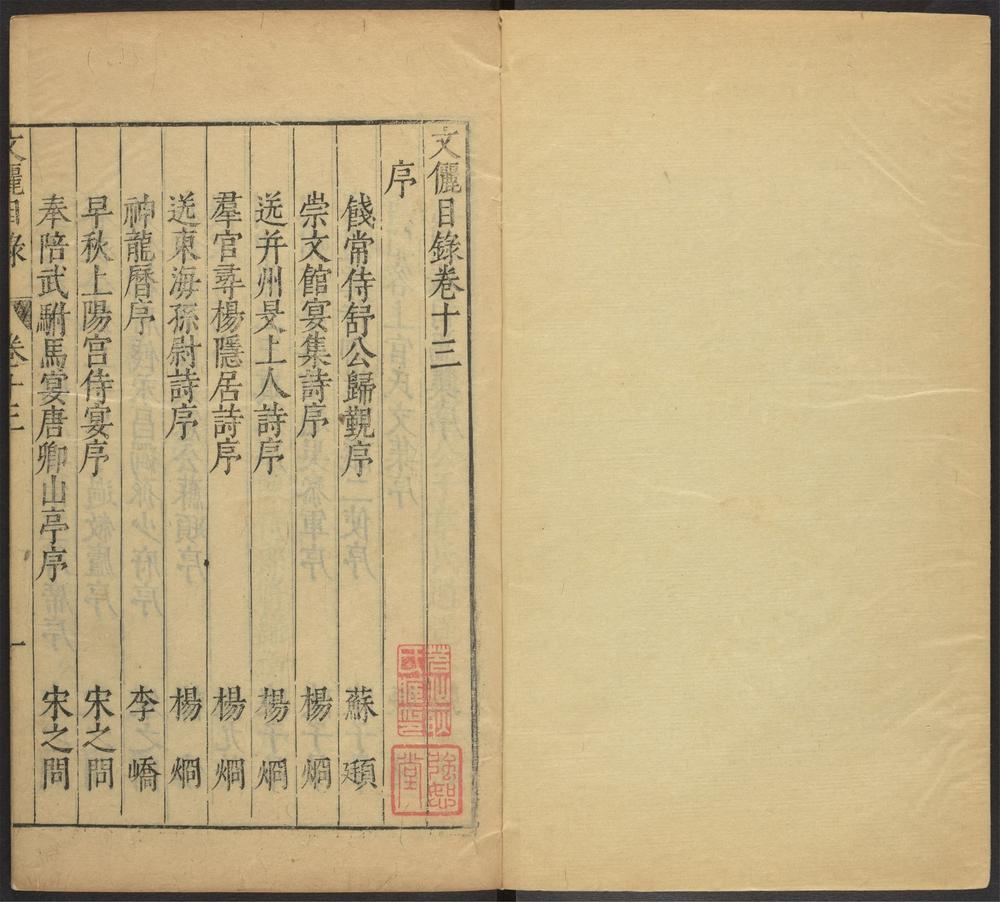 文儷目錄卷十三
序
餞常侍舒公歸覲序 蘇頲
崇文館宴集詩序 楊烱
送并州旻上人詩序 楊烱
羣官尋楊隱居詩序 楊烱
送東海孫尉詩序 楊烱
神龍曆序 李嶠
早秋上陽宮侍宴序 宋之問
奉陪武駙馬宴唐卿山亭序 宋之問
文儷目錄 卷十三 一